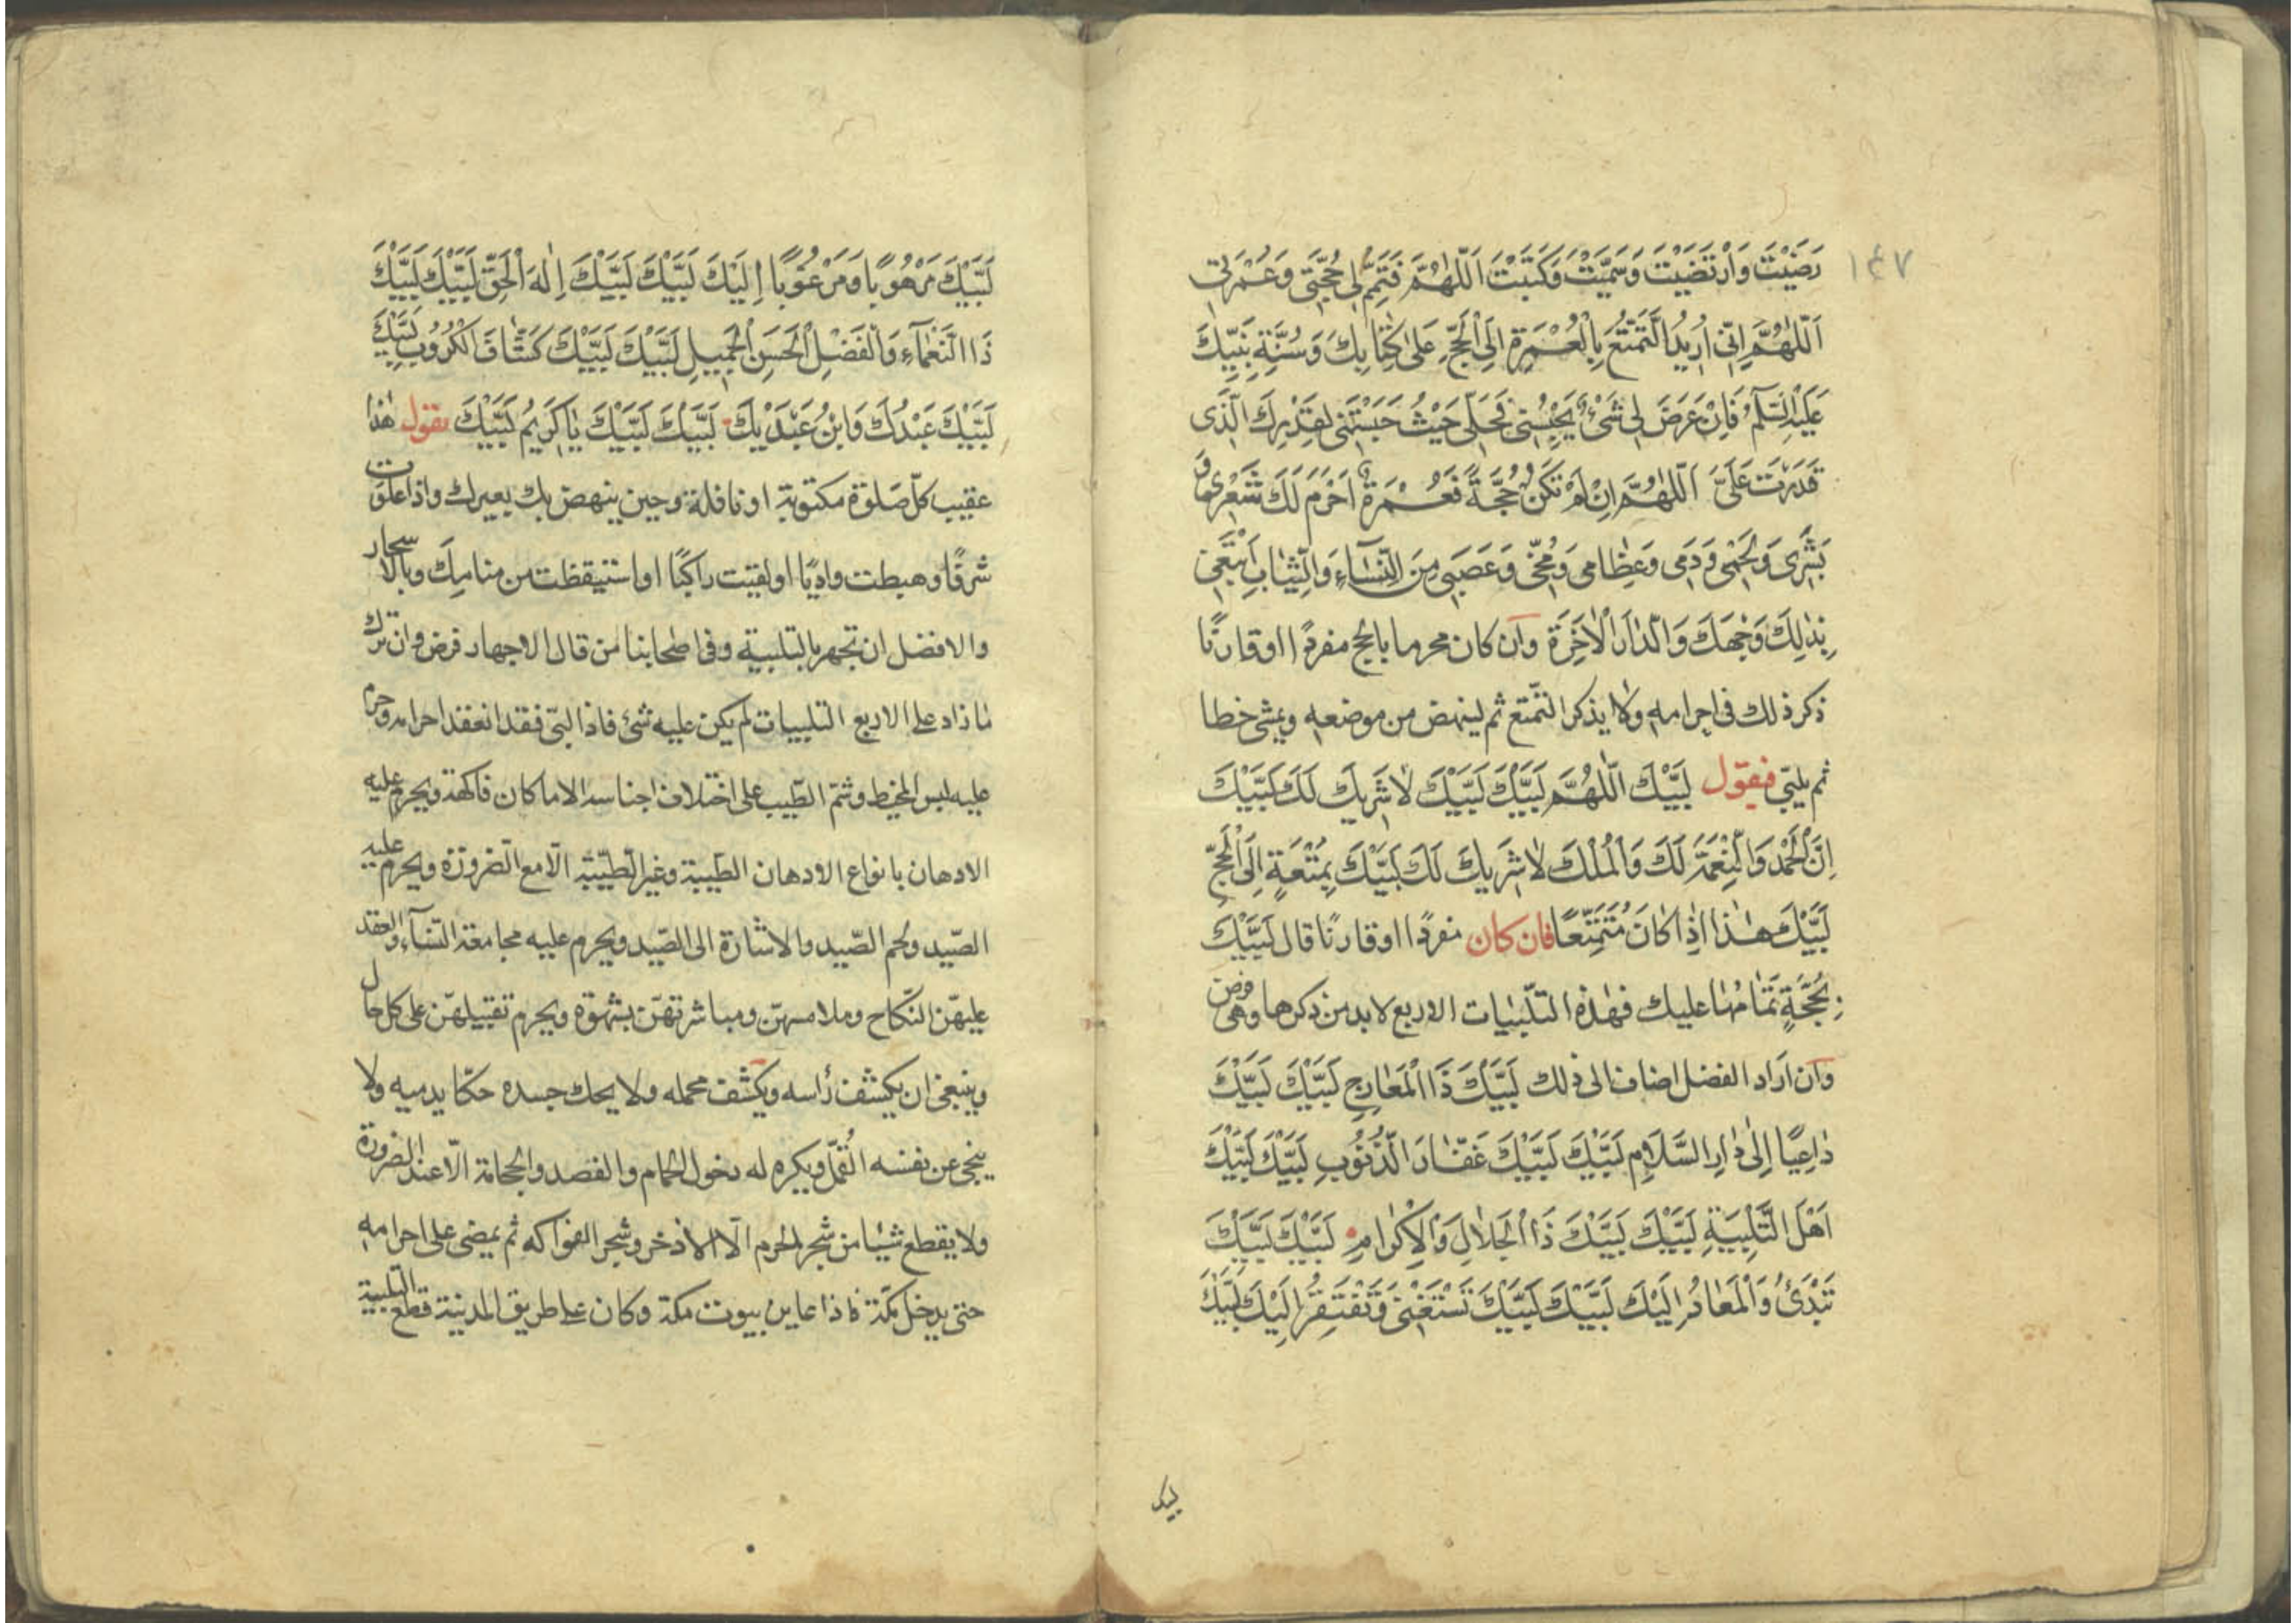 ١٤٧
رَضَيْتَ وَارْتَضَيْتَ وَسَمَّيْتَ وَكَتَبْتَ اَللّٰهُمَّ فَتَمِّمْ لِى حُجَّتِى وَعُمْرَتِى
اَللّٰهُمَّ اِنِّى اُرِيدُ التَّمَتُّعَ بِالْعُمْرَةِ اِلَى الْحَجِّ عَلىٰ كِتٰابِكَ وَسُنَّةِ نَبِيِّكَ
عَلَيْهِ السَّلٰمُ فَاِنْ عَرَضَ لِى شَىْءٌ يَحْبِسُنِى فَحَلِّى حَيْثُ حَبَسْتَنِى لِقَدَرِكَ الَّذِى
قَدَّرْتَ عَلَىَّ اَللّٰهُمَّ اِنْ لَمْ تَكُنْ حُجَّةً فَعُمْرَةً اَحْرَمَ لَكَ شَعْرِى وَ
بَشَرِى وَلَحْمِى وَدَمِى وَعِظٰامِى وَمُخِّى وَعَصَبِى مِنَ النِّسٰآءِ وَالثِّيٰابِ اَبْتَغِى
بِذٰلِكَ وَجْهَكَ وَالدّٰارَ الْاٰخِرَةَ وان كان محرما بالحج مفردًا اوقارنًا
ذكر ذلك فى احرامه ولا يذكر التمتع ثم لينهض من موضعه ويمشى خطا
ثم يلبّى فيقول لَبَّيْكَ اَللّٰهُمَّ لَبَّيْكَ لَبَّيْكَ لٰا شَرِيكَ لَكَ لَبَّيْكَ
اِنَّ الْحَمْدَ وَالنِّعْمَةَ لَكَ وَالْمُلْكَ لٰا شَرِيكَ لَكَ لَبَّيْكَ بِمُتْعَةٍ اِلَى الْحَجِّ
لَبَّيْكَ هٰذا اِذٰا كٰانَ مُتَمَتِّعًا فان كان مفردًا اوقارنًا قال لَبَّيْكَ
بِحُجَّةٍ تَمٰامُهٰا عليك فهذه التلبيات الاربع لابد من ذكرها وهى فرض
وان اراد الفضل اضاف الى ذلك لَبَّيْكَ ذَا الْمَعٰارِجِ لَبَّيْكَ لَبَّيْكَ
دٰاعِيًا اِلىٰ دٰارِ السَّلٰامِ لَبَّيْكَ لَبَّيْكَ غَفّٰارَ الذُّنُوبِ لَبَّيْكَ لَبَّيْكَ
اَهْلَ التَّلْبِيَةِ لَبَّيْكَ لَبَّيْكَ ذَا الْجَلٰالِ وَالْاِكْرٰامِ لَبَّيْكَ لَبَّيْكَ
تُبْدِئُ وَالْمَعٰادُ اِلَيْكَ لَبَّيْكَ لَبَّيْكَ تَسْتَغْنِى وَتُفْتَقَرُ اِلَيْكَ لَبَّيْكَ
لَبَّيْكَ مَرْهُوبًا وَمَرْغُوبًا اِلَيْكَ لَبَّيْكَ لَبَّيْكَ اِلٰهَ الْحَقِّ لَبَّيْكَ لَبَّيْكَ
ذَا النَّعْمٰآءِ وَالْفَضْلِ الْحَسَنِ الْجَمِيلِ لَبَّيْكَ لَبَّيْكَ كَشّٰافَ الْكُرُوبِ لَبَّيْكَ
لَبَّيْكَ عَبْدُكَ وَابْنُ عَبْدَيْكَ لَبَّيْكَ لَبَّيْكَ يٰا كَرِيمُ لَبَّيْكَ تقول هٰذا
عقيب كلّ صَلوٰة مكتوبة او نافلة وحين ينهض بك بعيرك واذا علوت
شرفًا وهبطت واديًا اولقيت راكبًا او استيقظت من منامك وبالاسحار
والافضل ان تجهر بالتلبية وفى اصحابنا من قال الاجهار فرض وان ترك
ما زاد على الاربع التلبيات لم يكن عليه شئ فاذا لبّى فقد انعقد احرامه وحرم
عليه لبس المخيط وشمّ الطّيب على اختلاف اجناسه الا ما كان فاكهة ويحرم عليه
الادهان بانواع الادهان الطّيبة وغير الطّيّبة الّا مع الضرورة ويحرم عليه
الصّيد ولحم الصّيد والاشارة الى الصّيد ويحرم عليه مجامعة النسآء والعقد
عليهنّ النكاح وملامستهنّ ومباشرتهنّ بشهوة ويحرم تقبيلهنّ على كل حال
وينبغى ان يكشف رأسه ويكشف محمله ولا يحك جسده حكّا يدميه ولا
ينحى عن نفسه القُمّل ويكره له دخول الحمام والفصد والحجامة الّا عند الضرورة
ولا يقطع شيئا من شجر الحرم الّا الاذخر وشجر الفواكه ثم يمضى على احرامه
حتى يدخل مكّة فاذا عاين بيوت مكة وكان على طريق المدينة قطع التلبية